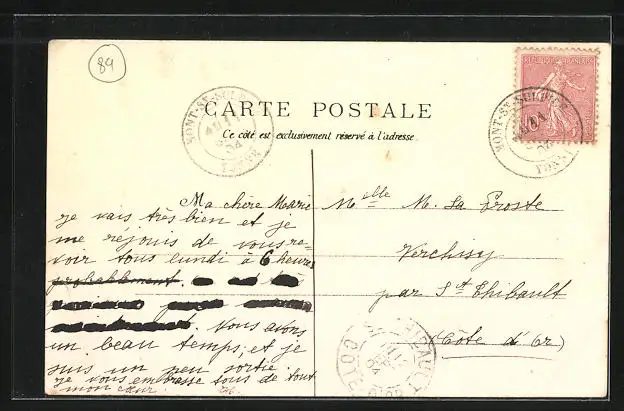 89
MONT-ST-SULPICE
YONNE
CARTE POSTALE
Ce côté est exclusivement réservé à l'adresse.
REPUBLIQUE FRANÇAISE
MONT-ST-SULPICE
YONNE
Ma chère Marie
je vais très bien et je
me réjouis de vous re=
voir tous lundi à 6 heures
probablement.
Nous avons
un beau temps, et je
suis un peu sortie.
Je vous embrasse tous de tout
mon cœur.
Melle M. La Proste
Verchisy
par St Thibault
(Côte d'Or)
THIBAULT
CÔTE D'OR